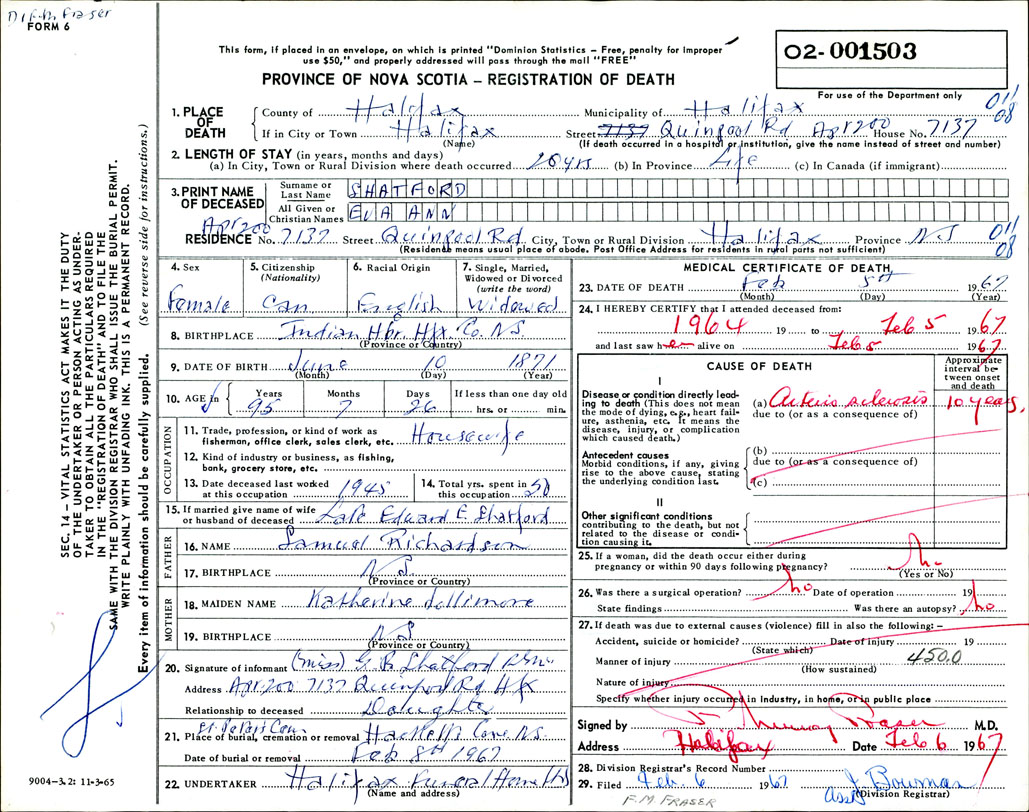 Dr F.M. Fraser
FORM 6
This form, if placed in an envelope, on which is printed "Dominion Statistics – Free, penalty for improper
use $50," and properly addressed will pass through the mail "FREE"
02-001503
PROVINCE OF NOVA SCOTIA – REGISTRATION OF DEATH
For use of the Department only
011
08
1. PLACE OF DEATH
County of Halifax Municipality of Halifax
If in City or Town Halifax Street 7137 Quinpool Rd Apt 200 House No. 7137
(Name) (If death occurred in a hospital or institution, give the name instead of street and number)
2. LENGTH OF STAY (in years, months and days)
(a) In City, Town or Rural Division where death occurred 20 yrs (b) In Province Life (c) In Canada (if immigrant)
3. PRINT NAME OF DECEASED
Surname or Last Name SHATFORD
All Given or Christian Names EVA ANN
Apt 200
RESIDENCE No. 7137 Street Quinpool Rd City, Town or Rural Division Halifax Province N.S
011
08
(Residence means usual place of abode. Post Office Address for residents in rural parts not sufficient)
4. Sex
Female
5. Citizenship
(Nationality)
Can
6. Racial Origin
English
7. Single, Married,
Widowed or Divorced
(write the word)
Widowed
8. BIRTHPLACE Indian Hbr. Hfx. Co. N.S
(Province or Country)
9. DATE OF BIRTH June 10 1871
(Month) (Day) (Year)
10. AGE in Years Months Days If less than one day old
95 7 26 hrs. or min.
OCCUPATION
11. Trade, profession, or kind of work as
fisherman, office clerk, sales clerk, etc. Housewife
12. Kind of industry or business, as fishing,
bank, grocery store, etc.
13. Date deceased last worked
at this occupation 1945
14. Total yrs. spent in
this occupation 50
15. If married give name of wife
or husband of deceased Late Edward E Shatford
FATHER
16. NAME Samuel Richardson
17. BIRTHPLACE N S
(Province or Country)
MOTHER
18. MAIDEN NAME Katherine Dollimore
19. BIRTHPLACE N S
(Province or Country)
20. Signature of informant (Miss) G. B. Shatford
Address Apt 200 7137 Quinpool Rd Hfx
Relationship to deceased Daughter
St Peters Cem
21. Place of burial, cremation or removal Hacketts Cove N.S.
Date of burial or removal Feb 8th 1967
22. UNDERTAKER Halifax Funeral Home
(Name and address)
MEDICAL CERTIFICATE OF DEATH
23. DATE OF DEATH Feb 5th 1967
(Month) (Day) (Year)
24. I HEREBY CERTIFY that I attended deceased from:
1964 19 to Feb 5 1967
and last saw her alive on Feb 5 1967
CAUSE OF DEATH
Approximate
interval be-
tween onset
and death
I
Disease or condition directly lead-
ing to death (This does not mean
the mode of dying, e.g., heart fail-
ure, asthenia, etc. It means the
disease, injury, or complication
which caused death.)
(a) Arterio sclerosis 10 years,
due to (or as a consequence of)
Antecedent causes
Morbid conditions, if any, giving
rise to the above cause, stating
the underlying condition last.
(b)
due to (or as a consequence of)
(c)
II
Other significant conditions
contributing to the death, but not
related to the disease or condi-
tion causing it.
25. If a woman, did the death occur either during
pregnancy or within 90 days following pregnancy? no
(Yes or No)
26. Was there a surgical operation? no Date of operation 19
State findings Was there an autopsy? no
27. If death was due to external causes (violence) fill in also the following: –
Accident, suicide or homicide? Date of injury 19
(State which)
450.0
Manner of injury
(How sustained)
Nature of injury
Specify whether injury occurred in Industry, in home, or in public place
Signed by F Murray Fraser M.D.
Address Halifax Date Feb 6 1967
28. Division Registrar's Record Number
29. Filed Feb. 6 1967 J. Bowman
Asst (Division Registrar)
F. M. FRASER
SEC. 14 – VITAL STATISTICS ACT MAKES IT THE DUTY
OF THE UNDERTAKER OR PERSON ACTING AS UNDER-
TAKER TO OBTAIN ALL THE PARTICULARS REQUIRED
IN THE "REGISTRATION OF DEATH" AND TO FILE THE
SAME WITH THE DIVISION REGISTRAR WHO SHALL ISSUE THE BURIAL PERMIT.
WRITE PLAINLY WITH UNFADING INK. THIS IS A PERMANENT RECORD.
Every item of information should be carefully supplied. (See reverse side for instructions.)
9004-3.2: 11-3-65